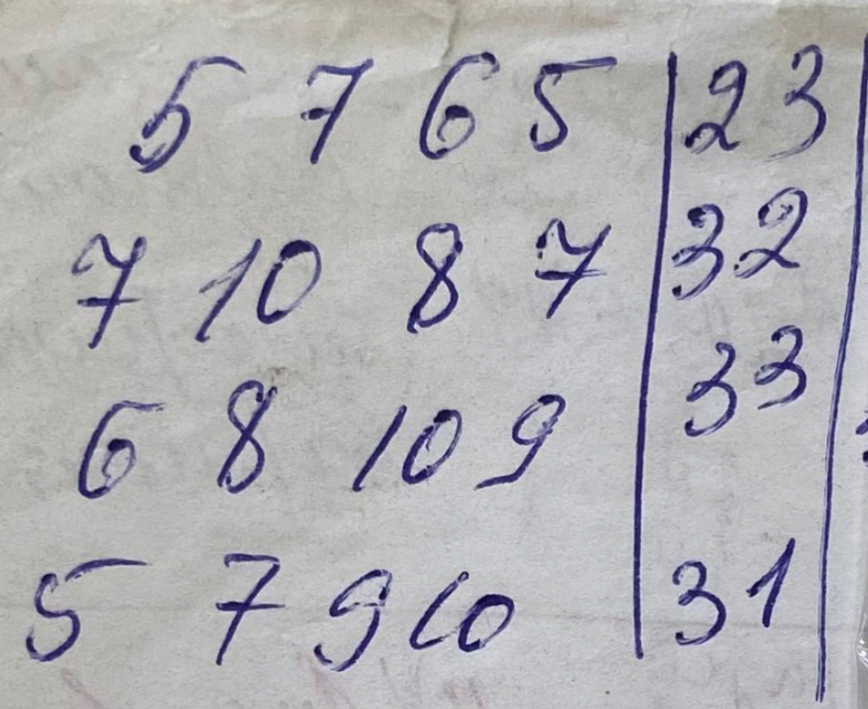 5 7 6 5 | 23
7 10 8 7 | 32
6 8 10 9 | 33
5 7 9 10 | 31